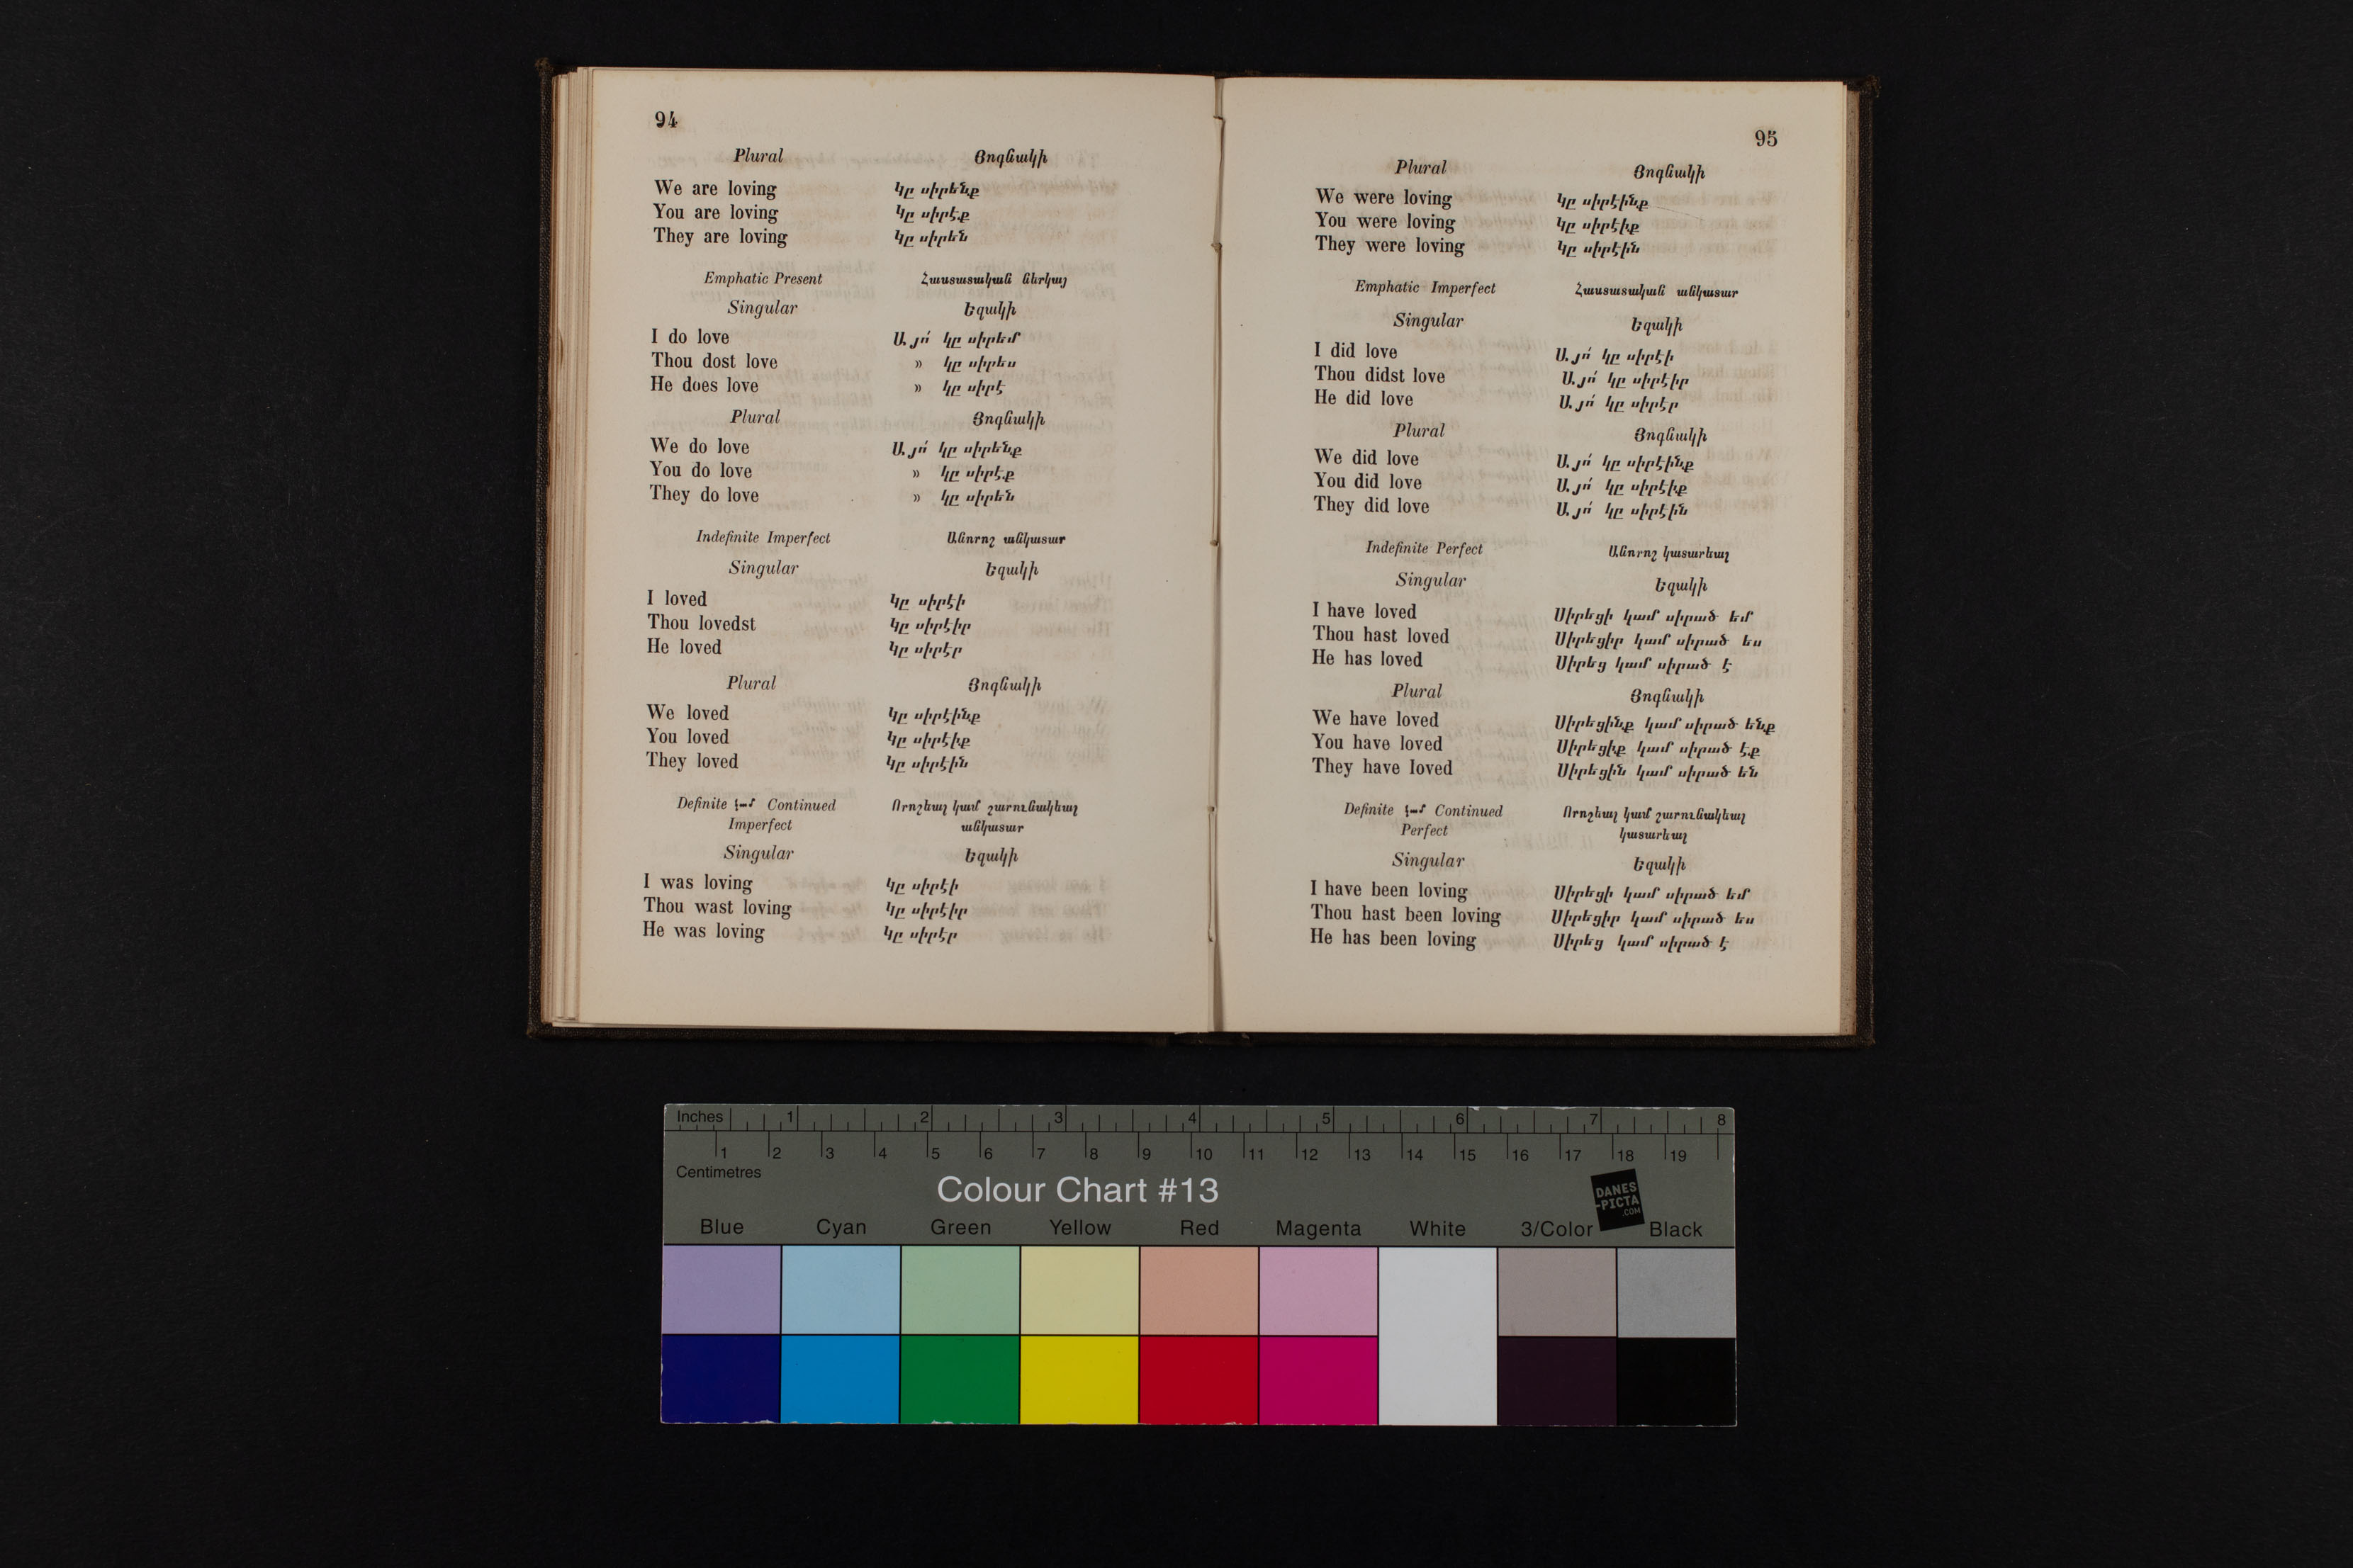 94
Plural Յոգնակի
We are loving կը սիրենք
You are loving կը սիրէք
They are loving կը սիրեն
Emphatic Present Հաստատական ներկայ
Singular Եզակի
I do love Այո՛ կը սիրեմ
Thou dost love » կը սիրես
He does love » կը սիրէ
Plural Յոգնակի
We do love Այո՛ կը սիրենք
You do love » կը սիրէք
They do love » կը սիրեն
Indefinite Imperfect Անորոշ անկատար
Singular Եզակի
I loved կը սիրէի
Thou lovedst կը սիրէիր
He loved կը սիրէր
Plural Յոգնակի
We loved կը սիրէինք
You loved կը սիրէիք
They loved կը սիրէին
Definite կամ Continued Որոշեալ կամ շարունակեալ
Imperfect անկատար
Singular Եզակի
I was loving կը սիրէի
Thou wast loving կը սիրէիր
He was loving կը սիրէր
95
Plural Յոգնակի
We were loving կը սիրէինք
You were loving կը սիրէիք
They were loving կը սիրէին
Emphatic Imperfect Հաստատական անկատար
Singular Եզակի
I did love Այո՛ կը սիրէի
Thou didst love Այո՛ կը սիրէիր
He did love Այո՛ կը սիրէր
Plural Յոգնակի
We did love Այո՛ կը սիրէինք
You did love Այո՛ կը սիրէիք
They did love Այո՛ կը սիրէին
Indefinite Perfect Անորոշ կատարեալ
Singular Եզակի
I have loved Սիրեցի կամ սիրած եմ
Thou hast loved Սիրեցիր կամ սիրած ես
He has loved Սիրեց կամ սիրած է
Plural Յոգնակի
We have loved Սիրեցինք կամ սիրած ենք
You have loved Սիրեցիք կամ սիրած էք
They have loved Սիրեցին կամ սիրած են
Definite կամ Continued Որոշեալ կամ շարունակեալ
Perfect կատարեալ
Singular Եզակի
I have been loving Սիրեցի կամ սիրած եմ
Thou hast been loving Սիրեցիր կամ սիրած ես
He has been loving Սիրեց կամ սիրած է
Inches 1 2 3 4 5 6 7 8
1 2 3 4 5 6 7 8 9 10 11 12 13 14 15 16 17 18 19
Centimetres
Colour Chart #13
DANES
-PICTA
.COM
Blue Cyan Green Yellow Red Magenta White 3/Color Black